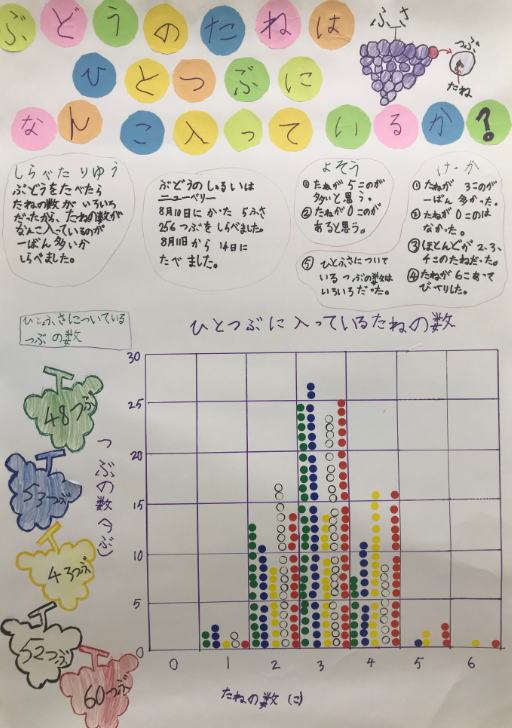 ぶどうのたねは
ひとつぶに
なんこ入っているか?
ふさ
つぶ
たね
しらべたりゆう
ぶどうをたべたら
たねの数がいろいろ
だったから、たねの数が
なんこ入っているのが
一ばん多いか
しらべました。
ぶどうのしゅるいは
ニューベリー
8月10日にかった5ふさ
256つぶをしらべました。
8月11日から14日に
たべました。
よそう
①たねが5このが
多いと思う。
②たねが0このが
あると思う。
けっか
①たねが3このが
一ばん多かった。
②たねが0このは
なかった。
③ほとんどが2、3、
4このたねだった。
④たねが6こあって
びっくりした。
⑤ひとふさについて
いるつぶの数は
いろいろだった。
ひとふさについている
つぶの数
48つぶ
53つぶ
43つぶ
52つぶ
60つぶ
ひとつぶに入っているたねの数
つぶの数(つぶ)
30
25
20
15
10
5
0
0 1 2 3 4 5 6
たねの数(こ)